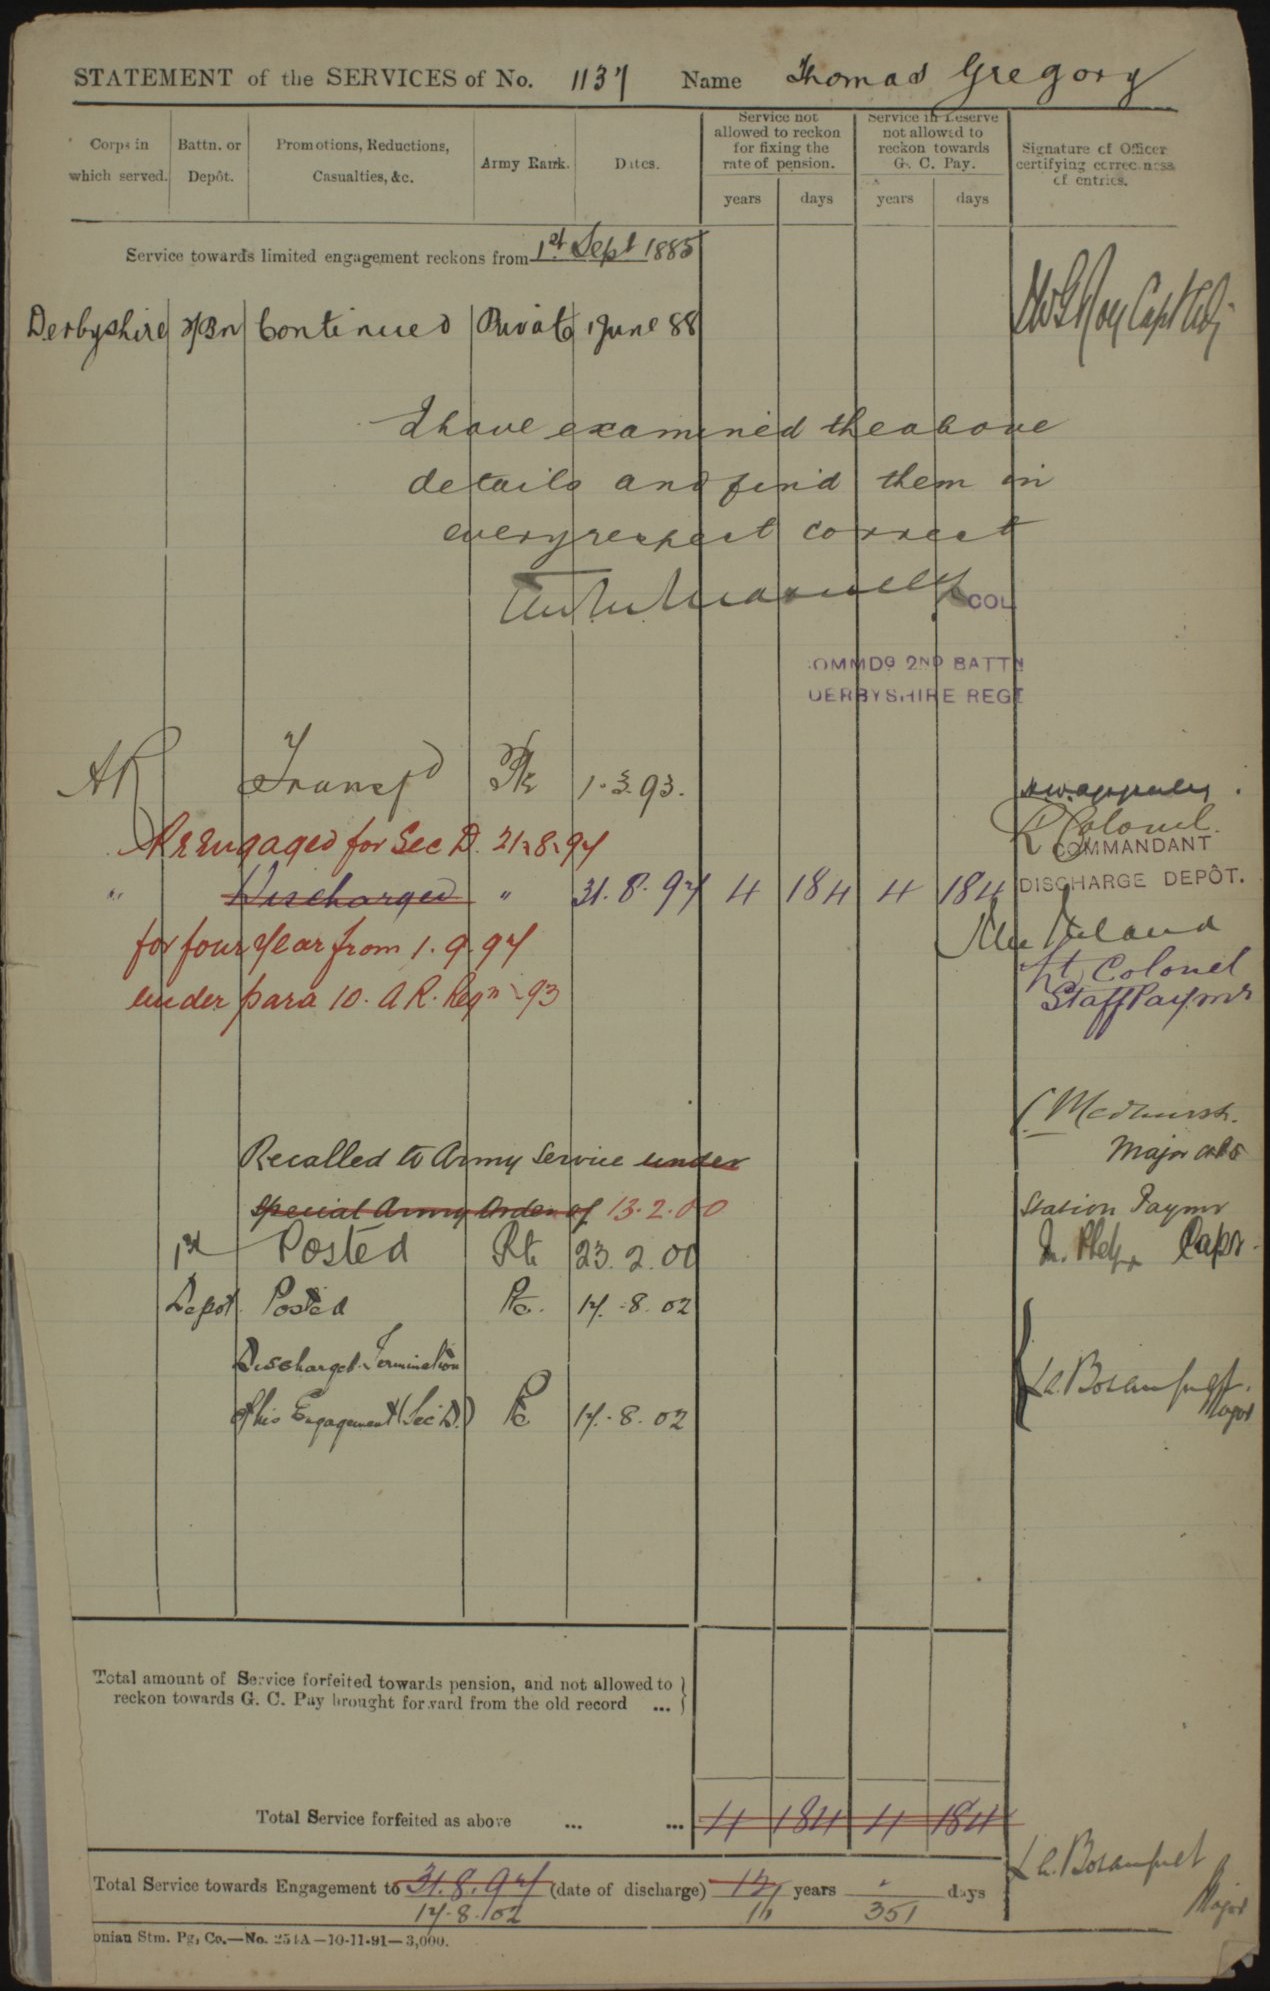 STATEMENT of the SERVICES of No. 1137 Name Thomas Gregory
Corps in which served.
Battn. or Depôt.
Promotions, Reductions, Casualties, &c.
Army Rank.
Dates.
Service not allowed to reckon for fixing the rate of pension.
Service in Reserve not allowed to reckon towards G. C. Pay.
Signature of Officer certifying correctness of entries.
years days years days
Service towards limited engagement reckons from 1st Sept 1885
Derbyshire 2/Bn Continued Private 1 June 88 Capt Adj
I have examined the above
details and find them in
every respect correct
COL
COMMDG 2ND BATTN
DERBYSHIRE REGT
AR Transfd Pte 1.3.93.
Colonel.
Re Engaged for Sec D. 21.8.97
COMMANDANT
" Discharged " 31.8.97 4 184 4 184 DISCHARGE DEPÔT.
for four year from 1.9.97
Lt Colonel
under para 10. A R. Regn 93 Staff Paymr
Medhurst
Recalled to Army Service under Major
special Army Order of 13.2.00 Station Paymr
1st Posted Pte 23.2.00 Capt.
Depot Posted Pte. 17.8.02
Discharged Termination
of his Engagement (Sec D.) Pte 17.8.02 Bosanquet Major
Total amount of Service forfeited towards pension, and not allowed to
reckon towards G. C. Pay brought forward from the old record ...
Total Service forfeited as above ... ... 4 184 4 184
Total Service towards Engagement to 31.8.97 (date of discharge) 12 years " days
17.8.02 16 351
Bosanquet Major
onian Stm. Pg, Co.—No. 254A—10-11-91—3,000.